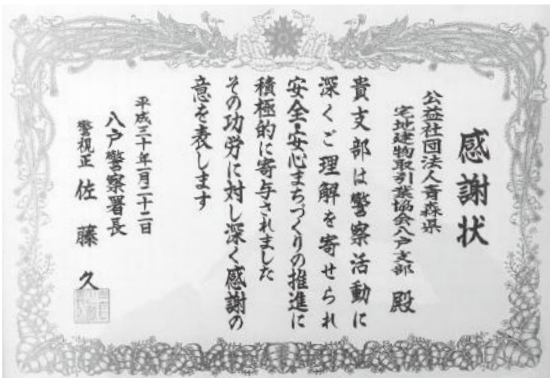 感謝状
公益社団法人青森県
宅地建物取引業協会八戸支部 殿
貴支部は警察活動に
深くご理解を寄せられ
安全・安心まちづくりの推進に
積極的に寄与されました
その功労に対し深く感謝の
意を表します
平成三十年一月二十二日
八戸警察署長
警視正 佐藤 久